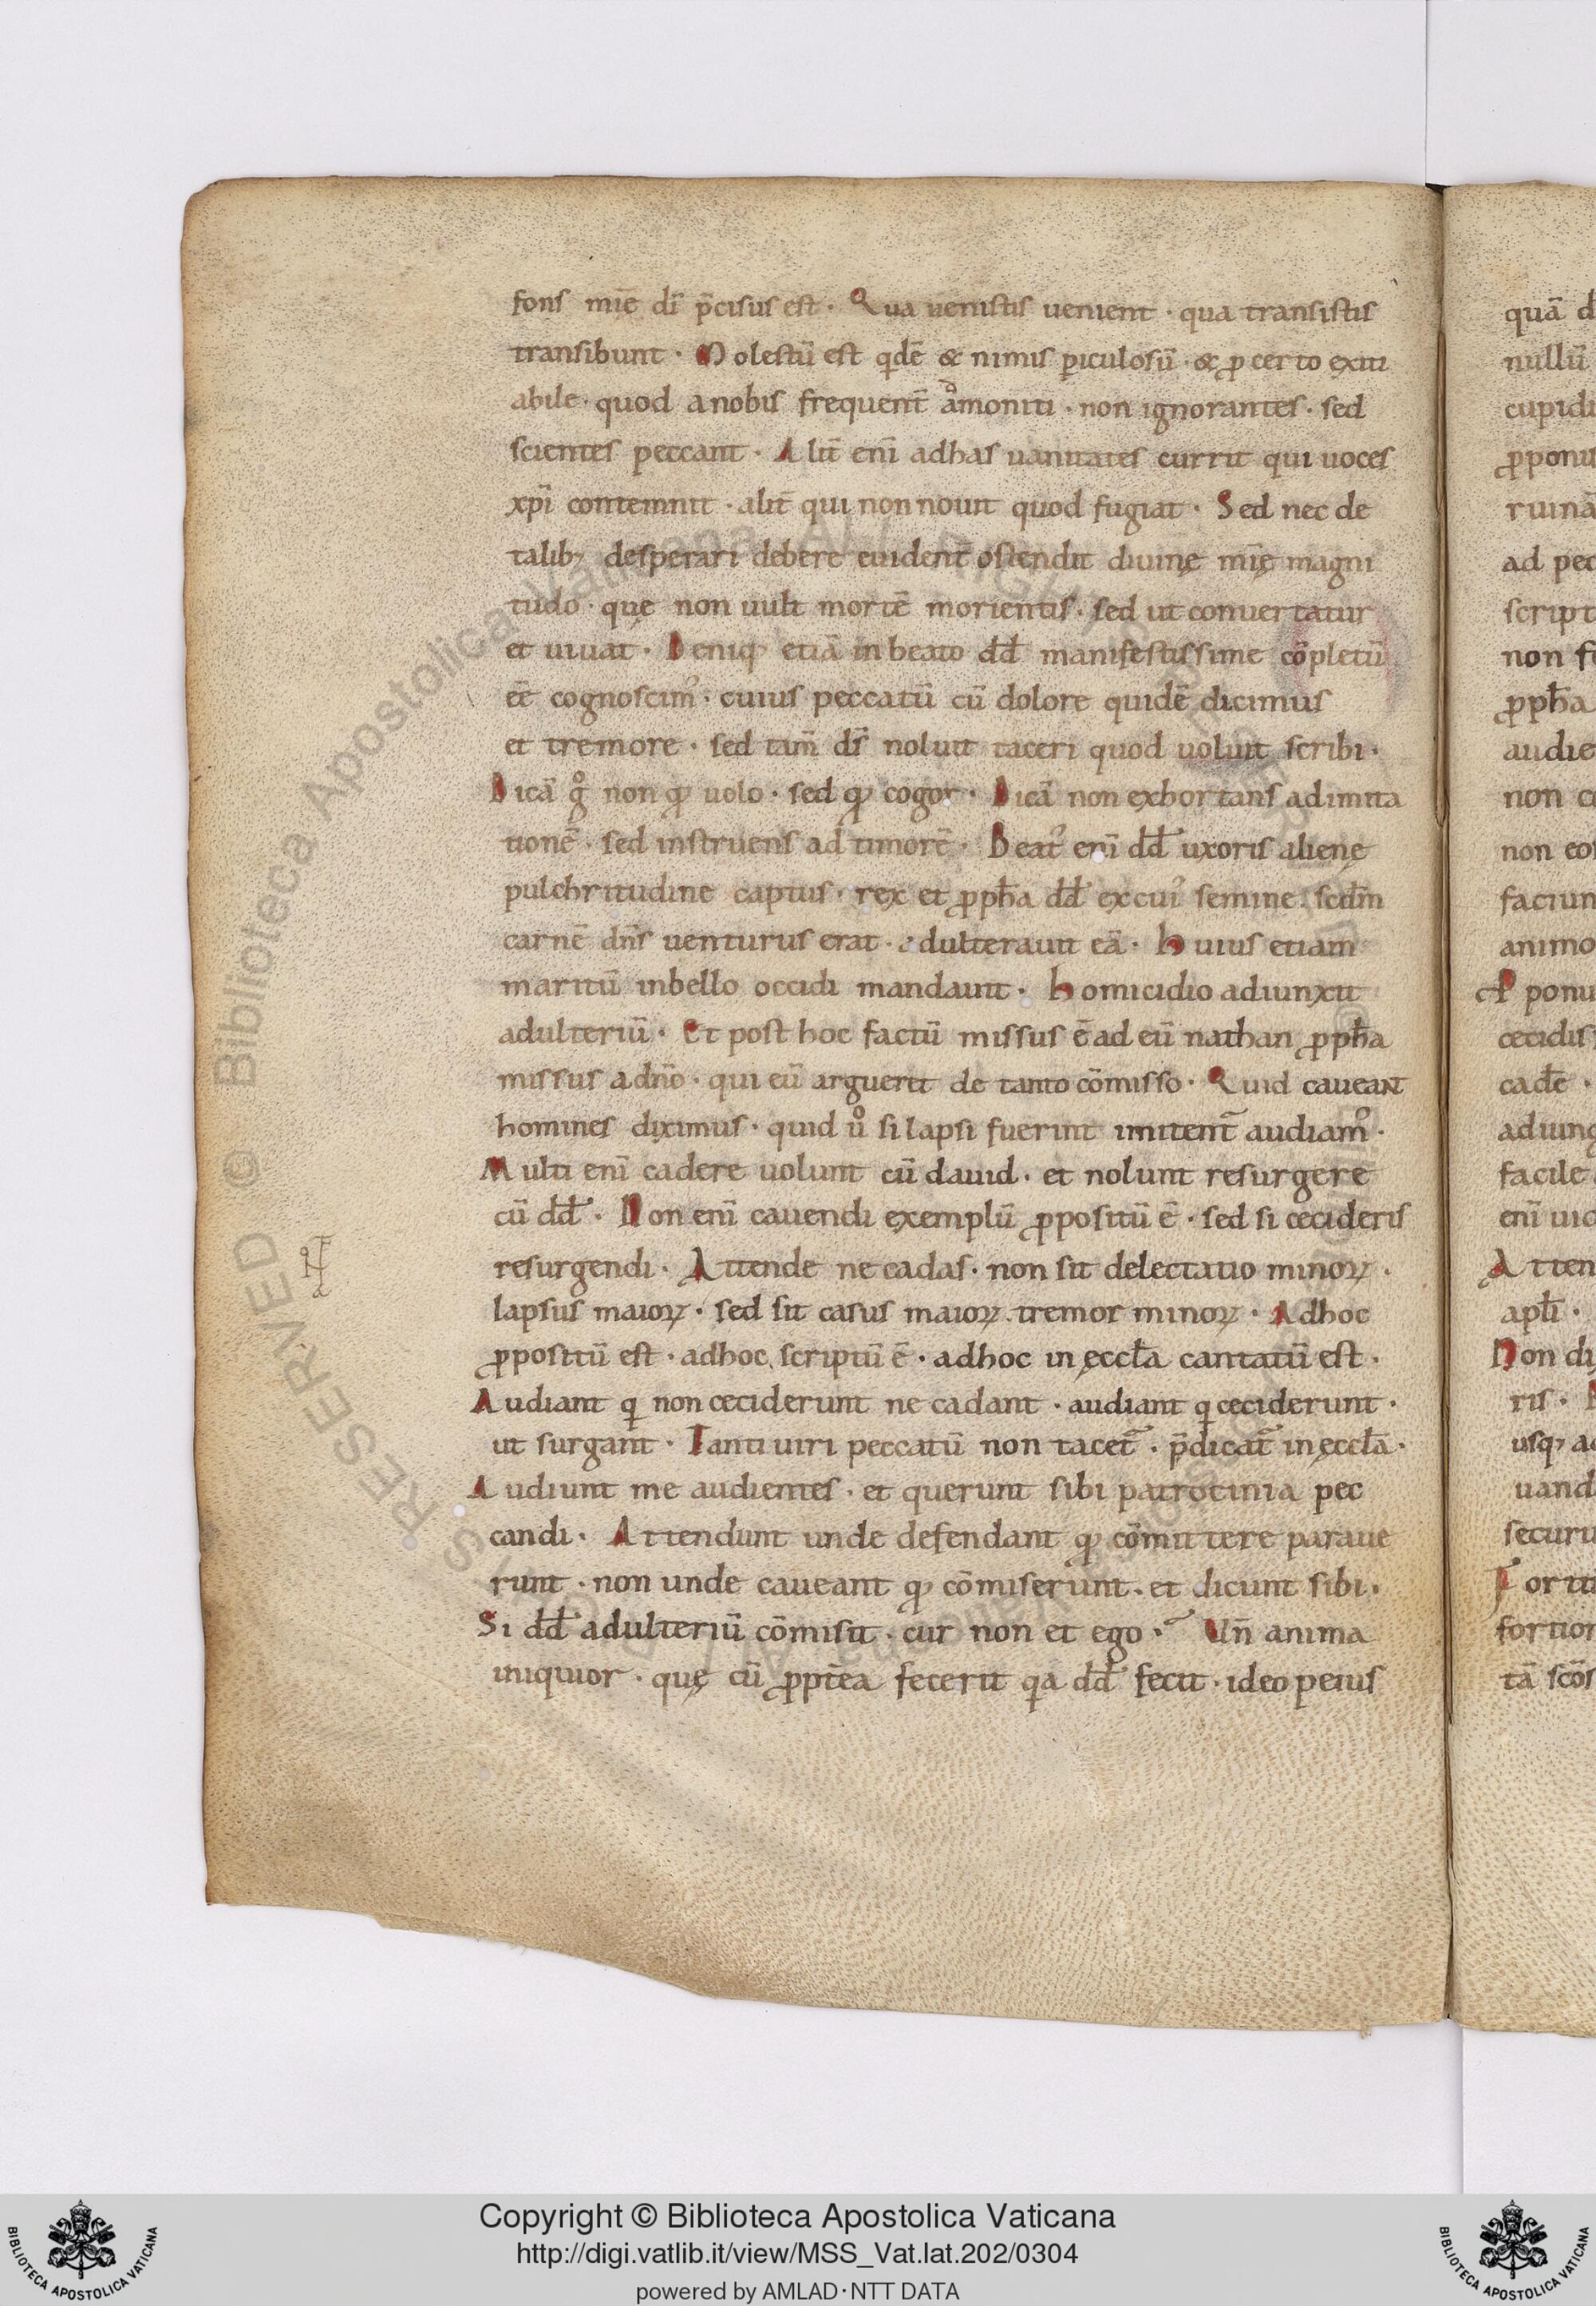 fons mīe dī p̄cisus est · Qua uenistis uenient · qua transistis
transibunt · Molestū est qdē & nimis ꝑiculosū · & ꝓ certo exiti
abile · quod anobis frequent̄ āmoniti · non ignorantes · sed
scientes peccant · Alit̄ enī adhas uanitates currit qui uoces
xp̄i contemnit · alit̄ qui non nouit quod fugiat · Sed nec de
talibꝫ desperari debere euident̄ ostendit diuinę mīę magni
tudo · quę non uult mortē morientis · sed ut conuertatur
et uiuat · Deniqꝫ etiā in beato dd̄ manifestissime cōpletū
eē cognoscimꝰ · cuius peccatū cū dolore quidē dicimus
et tremore · sed tam̄ ds̄ noluit taceri quod uoluit scribi ·
Dicā gͦ non qꝫ uolo · sed qꝫ cogor · Dicā non exhortans adimita
tionē · sed instruens ad timorē · Beatꝰ enī dd̄ uxoris alienę
pulchritudine captus · rex et ꝓpħa dd̄ excuiꝰ semine scđm
carnē dn̄s uenturus erat · adulterauit eā · Huius etiam
maritū inbello occidi mandauit · Homicidio adiunxit
adulteriū · Et post hoc factū missus ē ad eū nathan ꝓpħa
missus adn̄o · qui eū argueret de tanto cōmisso · Quid caueant
homines diximus · quid uͦ si lapsi fuerint imitent̄ audiamꝰ ·
Multi enī cadere uolunt cū dauid · et nolunt resurgere
cū dd̄ · Non enī cauendi exemplū ꝓpositū ē · sed si cecideris
resurgendi · Attende ne cadas · non sit delectatio minoꝝ ·
lapsus maioꝝ · sed sit casus maioꝝ tremor minoꝝ · Adhoc
ꝓpositū est · adhoc scriptū ē · adhoc in ęccła cantatū est ·
Audiant q non ceciderunt ne cadant · audiant q ceciderunt ·
ut surgant · Tanti uiri peccatū non tacet̄ · p̄dicat̄ in ęccła ·
Audiunt me audientes · et querunt sibi patrocinia pec
candi · Attendunt unde defendant qꝫ cōmittere paraue
runt · non unde caueant qꝫ cōmiserunt · et dicunt sibi ·
Si dd̄ adulteriū cōmisit · cur non et ego · Un̄ anima
iniquior · quę cū ꝓpt̄ea fecerit qa dd̄ fecit · ideo peius
quā
nullū
cupidi
ꝓponis
ruinā
ad pec
script
non
ꝓpħa
audie
non
non eos
faciun
animo
ponu
cecidis
cadē ·
adiung
facile
enī
Atten
apłi ·
Non
ris ·
usqꝫ
uand
secur
fortior
tā scōs
RESERVED © Biblioteca Apostolica Vaticana
Copyright © Biblioteca Apostolica Vaticana
http://digi.vatlib.it/view/MSS_Vat.lat.202/0304
powered by AMLAD·NTT DATA
BIBLIOTECA APOSTOLICA VATICANA
BIBLIOTECA APOSTOLICA VATICANA